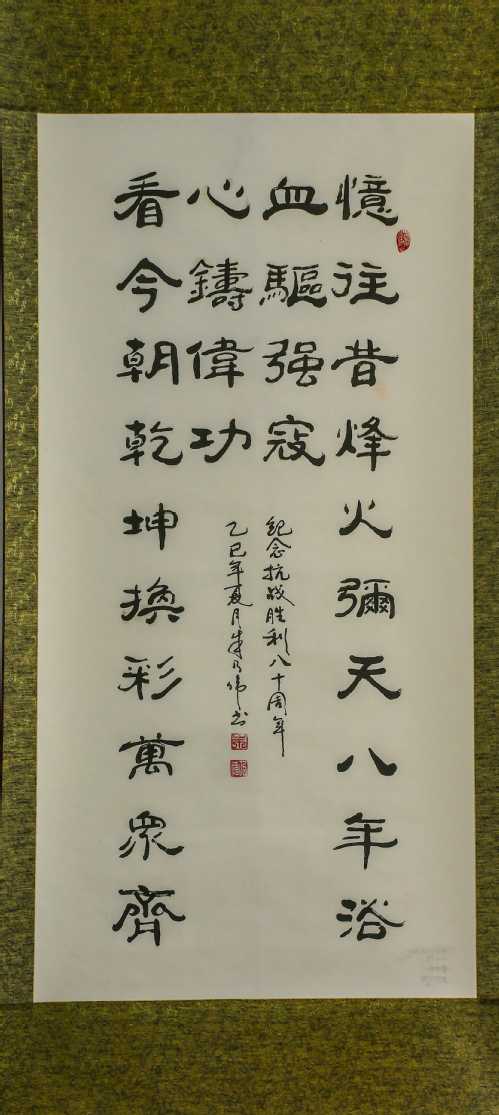 憶往昔烽火彌天八年浴
血驅强寇
看今朝乾坤換彩萬衆齊
心鑄偉功
紀念抗战胜利八十周年
乙巳年夏月乃伟书